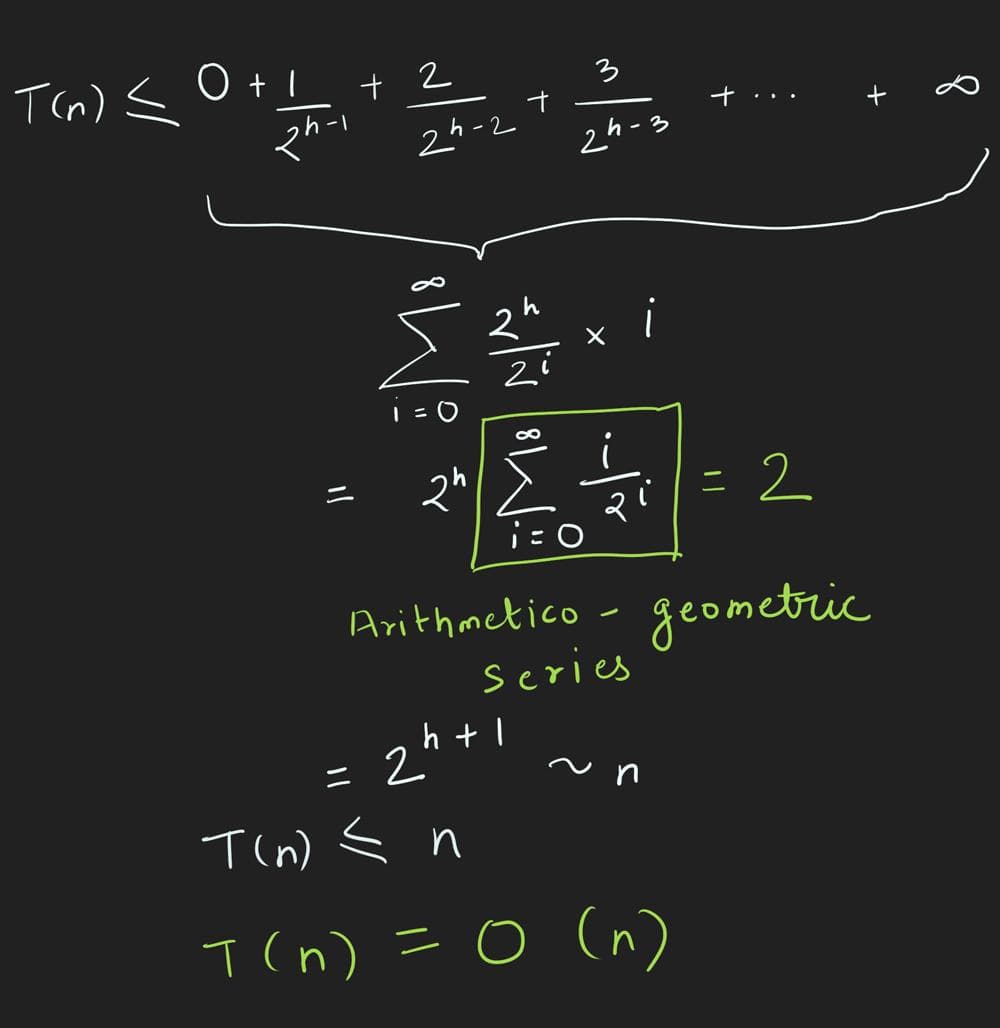 T(n) ≤ 0 + 1/2^(h-1) + 2/2^(h-2) + 3/2^(h-3) + ... + ∞
∞
Σ 2^h/2^i × i
i = 0
= 2^h ∞Σi=0 i/2^i = 2
Arithmetico - geometric
series
= 2^(h+1) ~ n
T(n) ≤ n
T(n) = O (n)